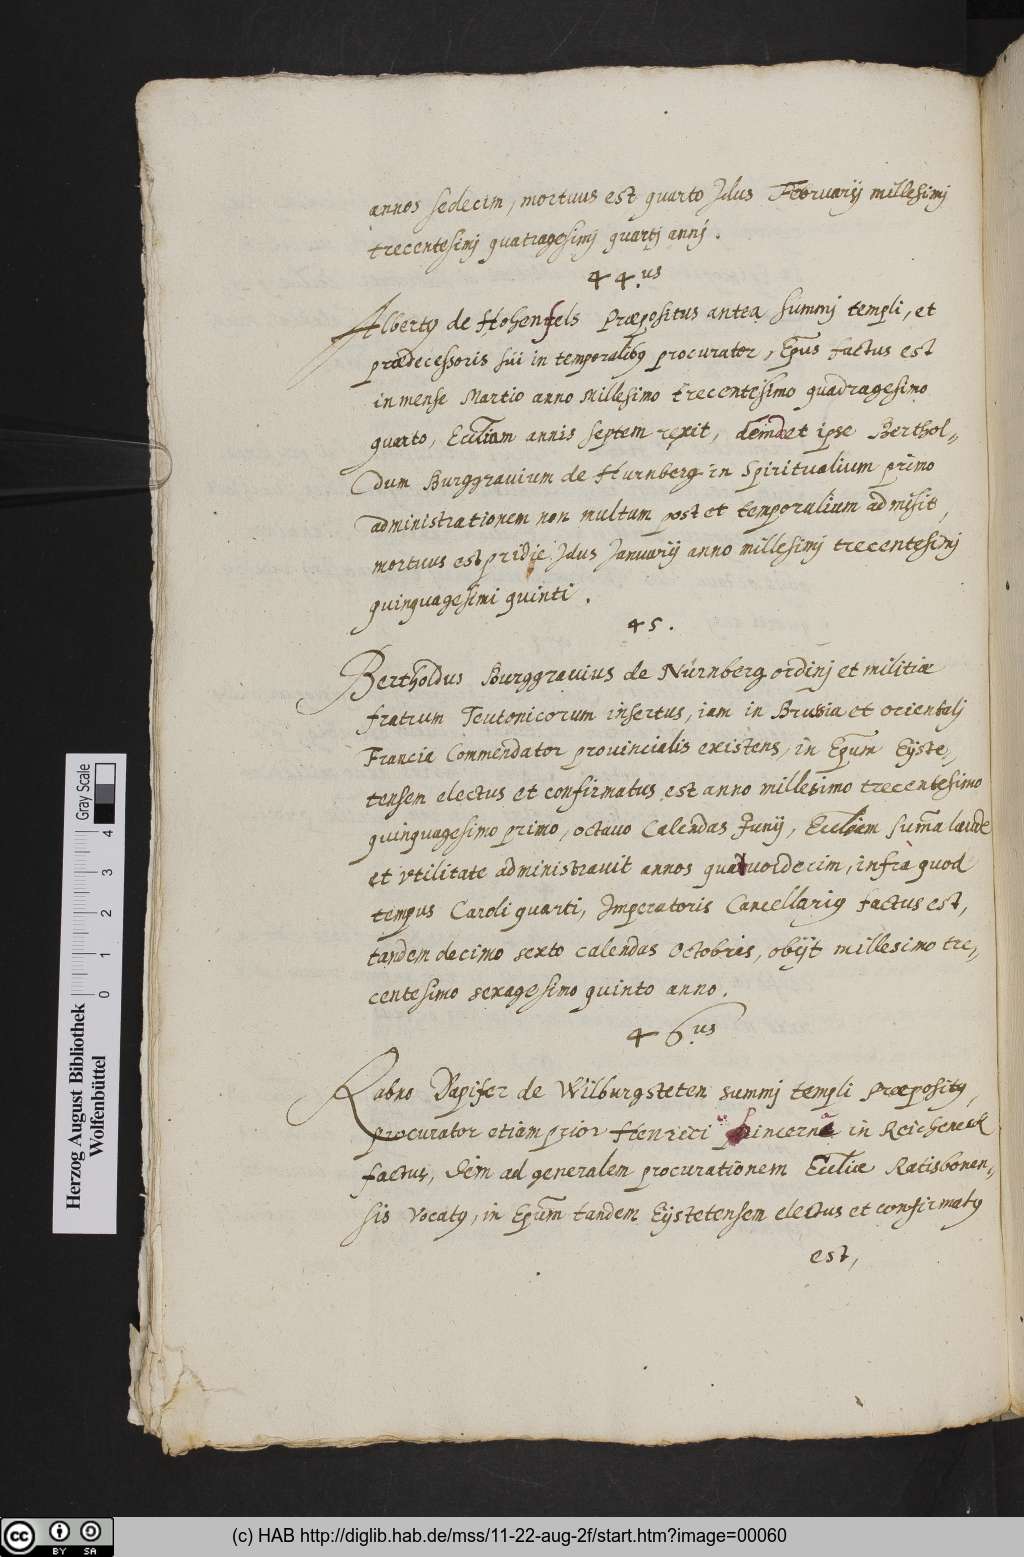 annos sedecim, mortuus est quarto Idus Februarij millesimj
trecentesimj quatragesimj quartj annj.
44.us
Albertus de Hohenfels Præpositus antea summj templi, et
prædecessoris sui in temporalibus procurator, Epus factus est
in mense Martio anno Millesimo trecentesimo quadragesimo
quarto, Eccliam annis septem rexit, deinde et ipse Berthol„
dum Burggrauium de Hurnberg in Spiritualium primo
administrationem non multum post et temporalium admisit,
mortuus est pridie Idus Januarij anno millesimj trecentesimj
quinquagesimi quinti.
45.
Bertholdus Burggrauius de Nürnberg ordinj et militiæ
fratrum Teutonicorum insertus, iam in Brussia et orientalj
Francia Commendator prouincialis existens, in Epum Eijste„
tensem electus et confirmatus est anno millesimo trecentesimo
quinquagesimo primo, octauo Calendas Junij, Eccliam suma laude
et vtilitate administrauit annos quatuordecim, infra quod
tempus Caroli quarti, Imperatoris Cancellarius factus est,
tandem decimo sexto calendas Octobris, obijt millesimo tre„
centesimo sexagesimo quinto anno.
46.us
Rabno Dapifer de Wilburgsteten summj templi Præpositus,
procurator etiam prior Henrici pincernæ in Reicheneck
factus, dein ad generalem procurationem Eccliæ Ratisbonen„
sis vocatus, in Epum tandem Eijstetensem electus et confirmatus
est,
Herzog August Bibliothek
Wolfenbüttel
Gray Scale
0 1 2 3 4
cc BY SA
(c) HAB http://diglib.hab.de/mss/11-22-aug-2f/start.htm?image=00060